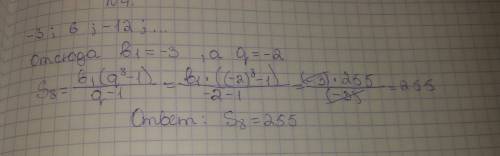 №4.
-3; 6; -12; ...
отсюда b₁ = -3, а q = -2
S₈ = b₁(q⁸-1)/q-1 = b₁·((-2)⁸-1)/-2-1 = (-3)·255/(-3) = 255
Ответ: S₈ = 255